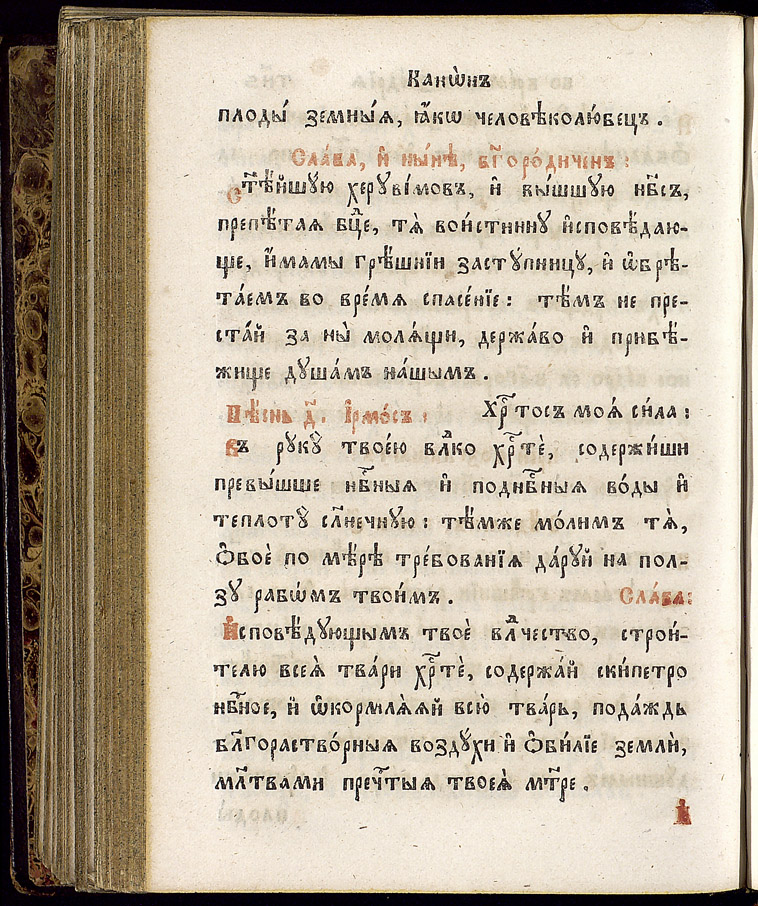 Канѡ́нъ
плоды̀ земны́ѧ, ꙗ҆́кѡ человѣколю́бецъ.
Сла́ва, и҆ ны́нѣ, бг҃оро́диченъ:
Ст҃ѣ́йшую херꙋві́мовъ, и҆ вы́шшую нб҃съ,
препѣ́таѧ бц҃е, тѧ̀ вои́стиннꙋ и҆сповѣ́даю-
ще, и҆́мамы грѣ́шнїи застꙋ́пницꙋ, и҆ ѡ҆брѣ-
та́емъ во вре́мѧ спасе́нїе: тѣ́мъ не пре-
ста́й за ны̀ молѧ́щи, держа́во и҆ прибѣ́-
жище дꙋша́мъ на́шымъ.
Пѣ́снь д҃. І҆рмо́съ: Хрⷭ҇то́съ моѧ̀ си́ла:
Въ рꙋкꙋ̀ твое́ю влⷣко хрⷭ҇тѐ, содержи́ши
превы́шше нбⷭ҇ныѧ и҆ поднбⷭ҇ныѧ во́ды и҆
теплотꙋ̀ сл҃нечную: тѣ́мже мо́лимъ тѧ̀,
ѻ҆боѐ по мѣ́рѣ тре́бованїѧ да́рꙋй на пол-
зꙋ рабѡ́мъ твои́мъ. Сла́ва:
И҆сповѣ́дꙋющымъ твоѐ влⷣчество, строи́-
телю всеѧ̀ тва́ри хрⷭ҇тѐ, содержа́й ски́петро
нбⷭ҇ное, и҆ ѡ҆кормлѧ́ѧй всю̀ тва́рь, пода́ждь
бл҃гораство́рныѧ во́здꙋхи и҆ ѻ҆би́лїе землѝ,
мл҃твами пречⷭ҇тыѧ твоеѧ̀ мт҃ре.
И҆